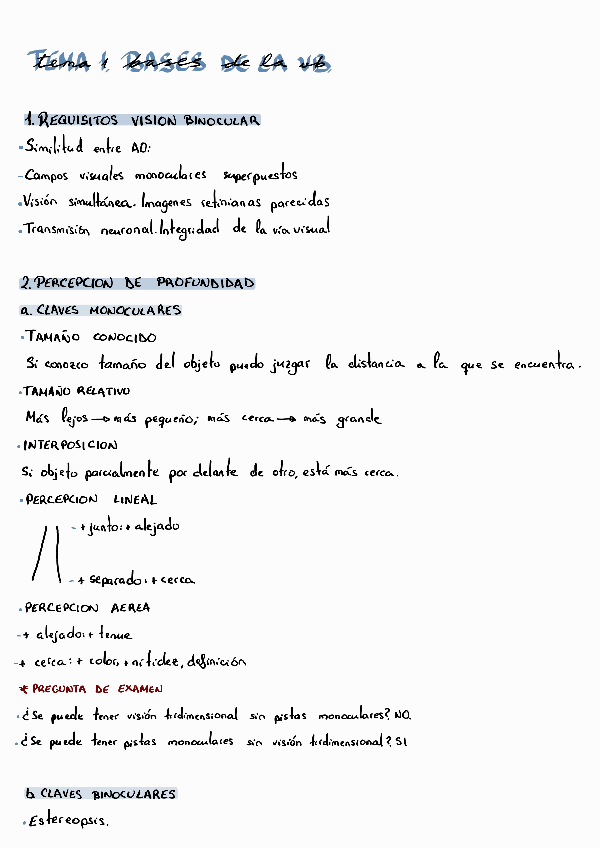 TEMA 1. BASES DE LA VB
1. REQUISITOS VISION BINOCULAR
• Similitud entre AO:
- Campos visuales monoculares superpuestos
• Visión simultánea. Imagenes retinianas parecidas
• Transmisión neuronal. Integridad de la vía visual
2. PERCEPCION DE PROFUNDIDAD
a. CLAVES MONOCULARES
• TAMAÑO CONOCIDO
Si conozco tamaño del objeto puedo juzgar la distancia a la que se encuentra.
• TAMAÑO RELATIVO
Más lejos → más pequeño; más cerca → más grande
• INTERPOSICION
Si objeto parcialmente por delante de otro, está más cerca.
• PERCEPCION LINEAL
- + junto: + alejado
- + separado: + cerca
• PERCEPCION AEREA
- + alejado: + tenue
- + cerca: + color, + nitidez, definición
* PREGUNTA DE EXAMEN
• ¿Se puede tener visión tirdimensional sin pistas monoculares? NO.
• ¿Se puede tener pistas monoculares sin visión tirdimensional? SI
b. CLAVES BINOCULARES
• Estereopsis.